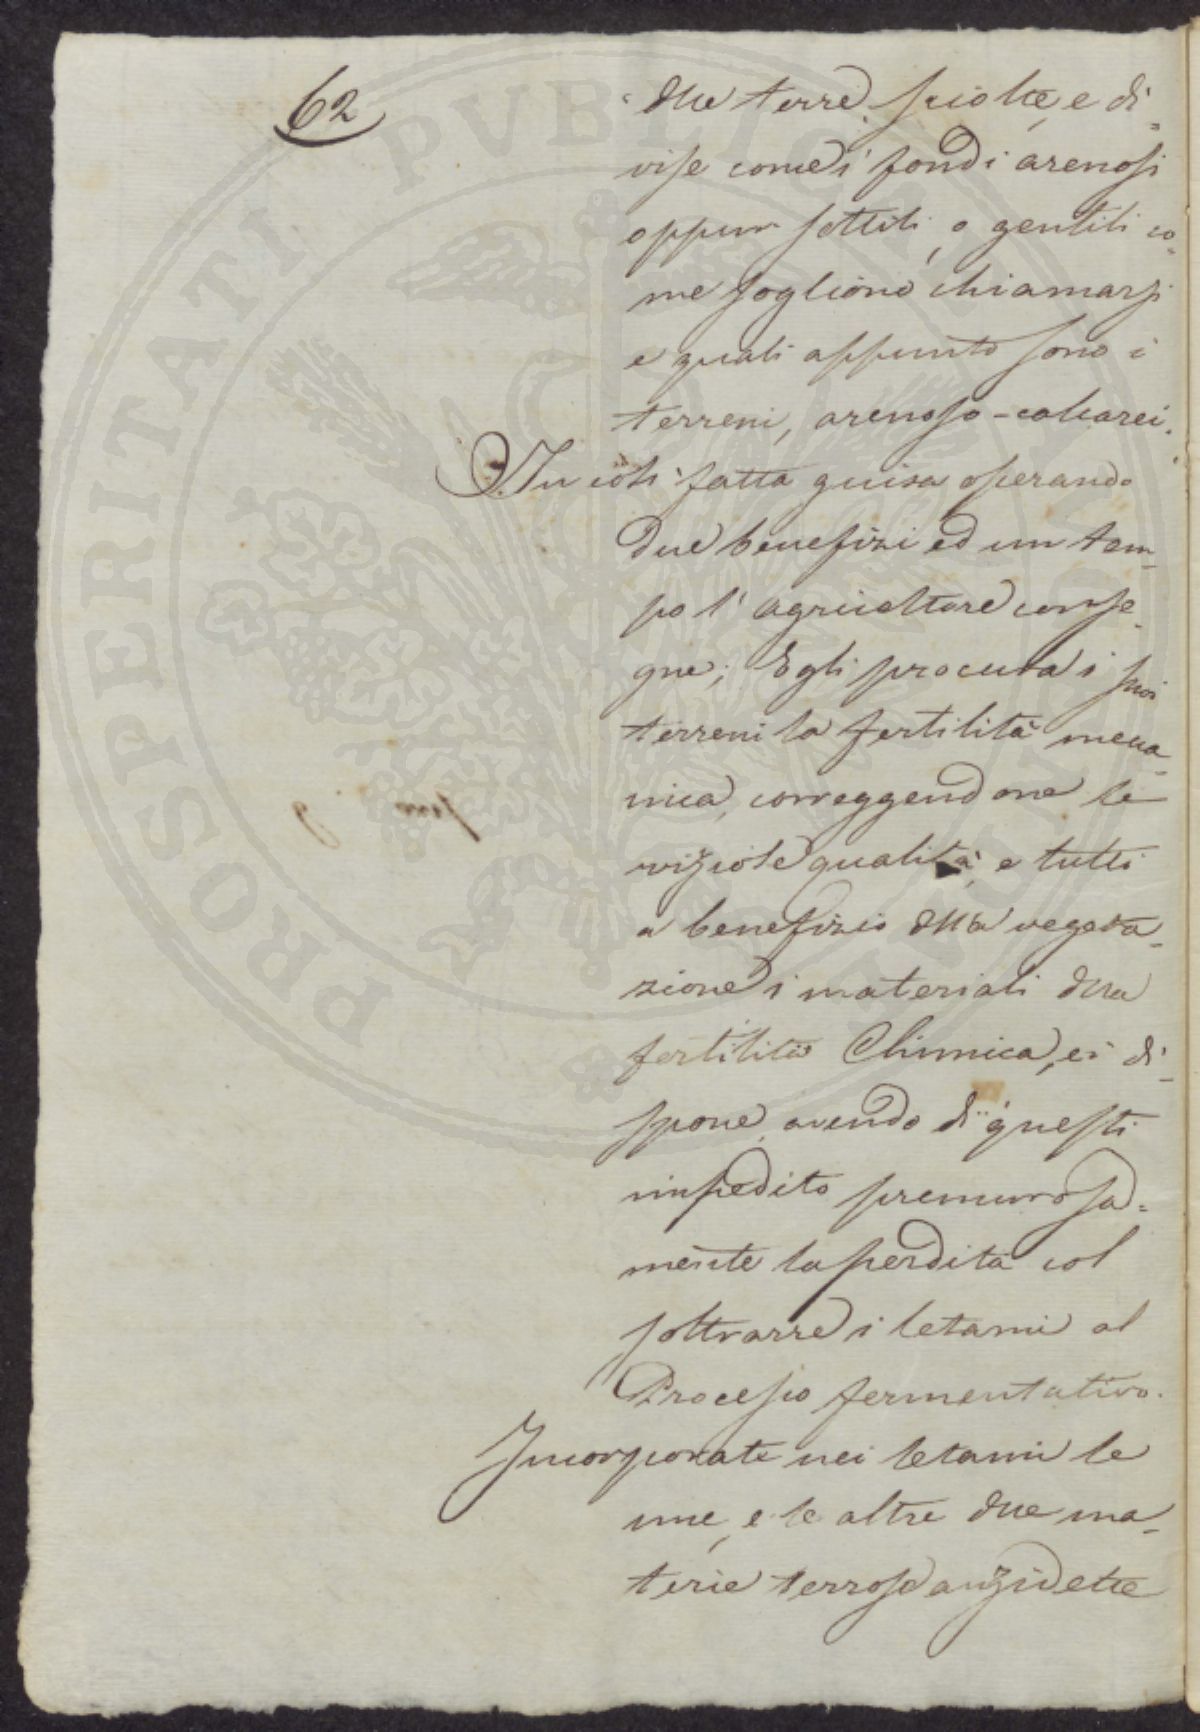 62
delle terre sciolte, e di=
vise come i fondi arenosi
oppur sottili, o gentili co=
me sogliono chiamarsi
e quali appunto sono i
terreni, arenoso-calcarei.
In così fatta guisa operando
due benefizi ed un tem=
po l'agricoltore conse=
gue; Egli procura i suoi
terreni la fertilità mecca=
nica, correggendone le
viziose qualità, e tutti
a benefizio della vegeta=
zione i materiali della
fertilità Chimica, ei di=
spone, avendo di questi
impedito premurosa=
mente la perdita col
sottrarre i letami al
Processo fermentativo.
Incorporate nei letami le
une, e le altre due ma=
terie terrose anzidette
PUBLICAE
PROSPERITATI